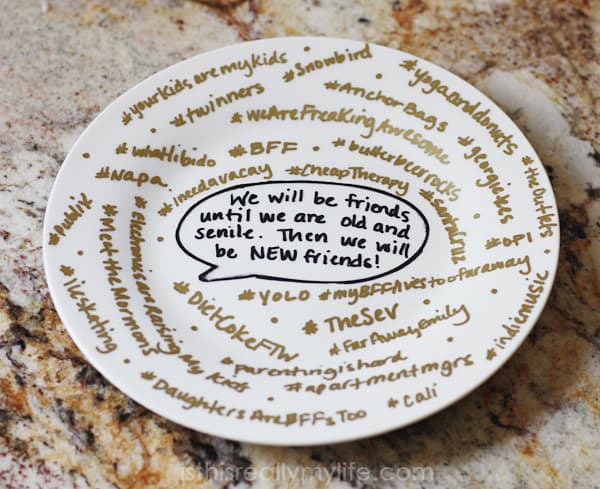 #yourkidsaremykids
#Snowbird
#yogaanddonuts
#twinners
#AnchorBags
#weAreFreaKingAwesome
#georgiekids
#theOutlets
#whatlibido
#BFF
#butterbeerrocks
#Napa
#ineedavacay
#CheapTherapy
#santaCruz
#Publik'
#MeettheMormons
#ElectronicsareRaisingMyKids
We will be friends
until we are old and
senile. Then we will
be NEW friends!
#DietCokeFTW
#YOLO
#myBFFlivestoofaraway
#TheSev
#FarAwayemily
#indiemusic
#iceskating
#parentingishard
#apartmentmgrs
#DaughtersAreBFFsToo
#cali
isthisreallymylife.com